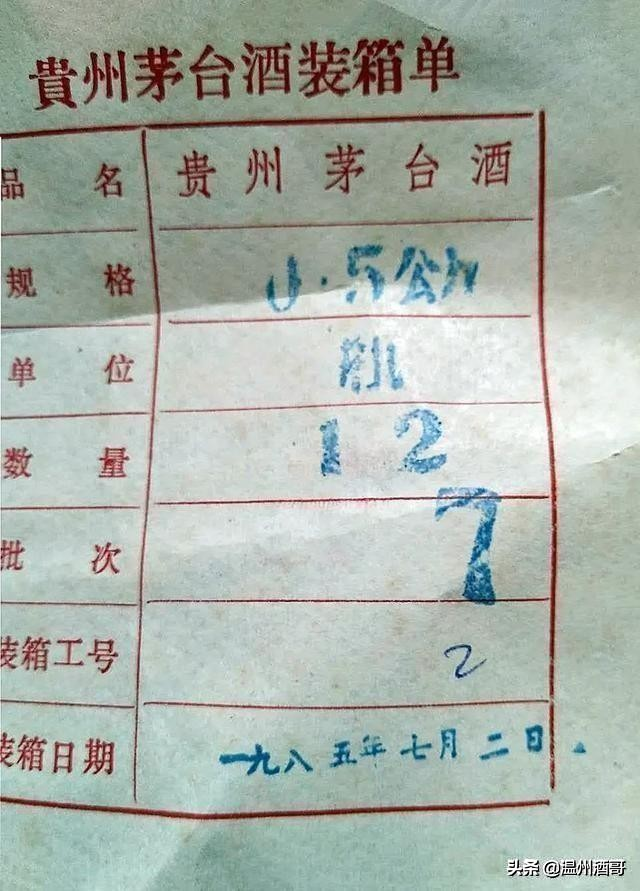 貴州茅台酒装箱单
品名 贵州茅台酒
规格 0.5公斤
单位 瓶
数量 12
批次 7
装箱工号 2
装箱日期 一九八五年七月二日.
头条 @温州酒哥